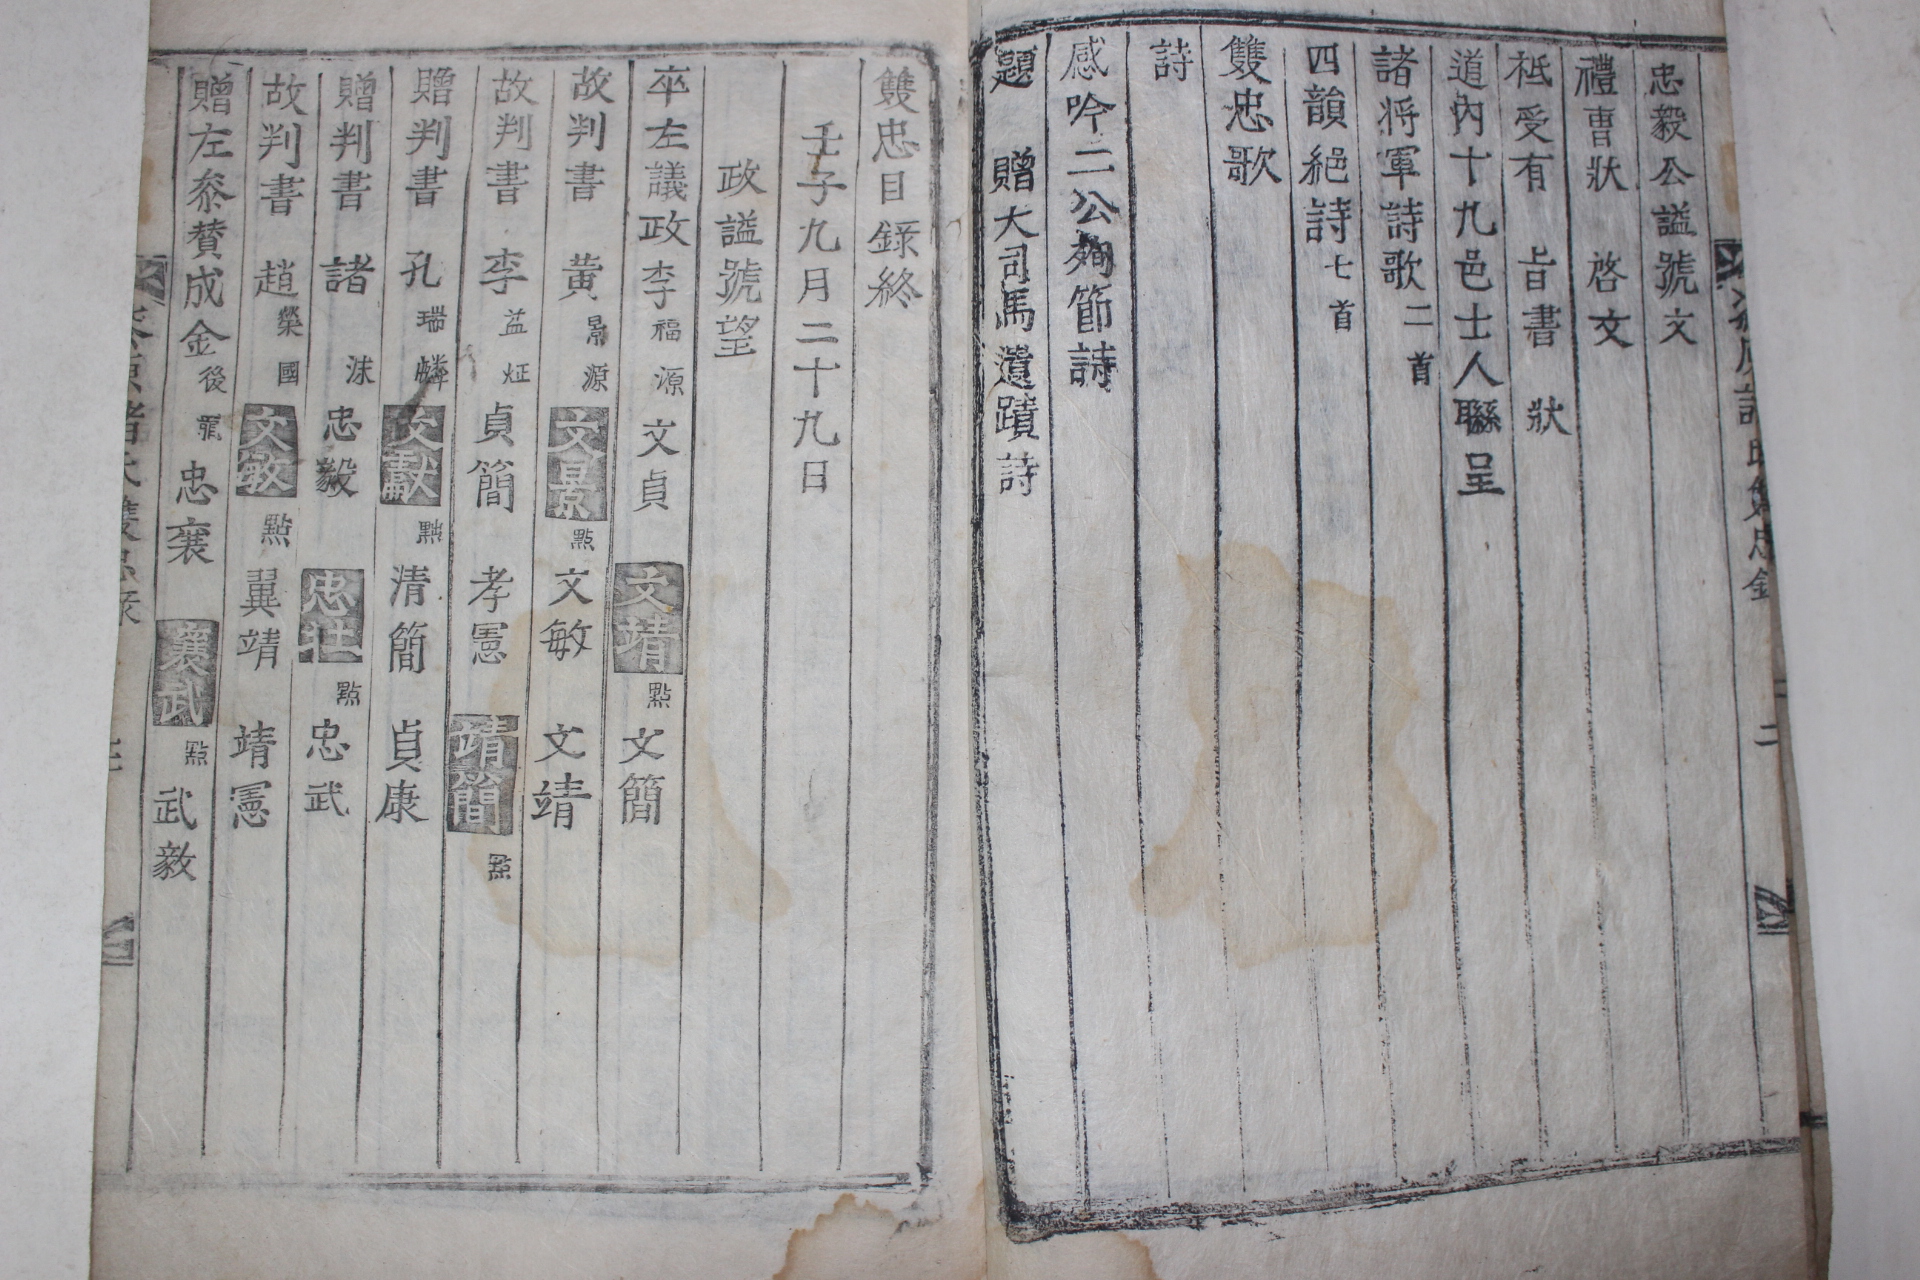 忠毅公謚號文
禮曹狀 啓文
祗受有 旨書狀
道內十九邑士人聯呈
諸將軍詩歌二首
四韻絕詩七首
雙忠歌
詩
感吟二公殉節詩
題 贈大司馬遺蹟詩
雙忠目録終
壬子九月二十九日
政謚號望
卒左議政李福源 文貞 文靖 點 文簡
故判書 黃景源 文景 點 文敏 文靖
故判書 李益炡 貞簡 孝憲 靖簡 點
贈判書 孔瑞麟 文獻 點 清簡 貞康
贈判書 諸沫 忠毅 忠壯 點 忠武
故判書 趙榮國 文敏 點 翼靖 靖憲
贈左叅贊成金後龍 忠襄 襄武 點 武毅